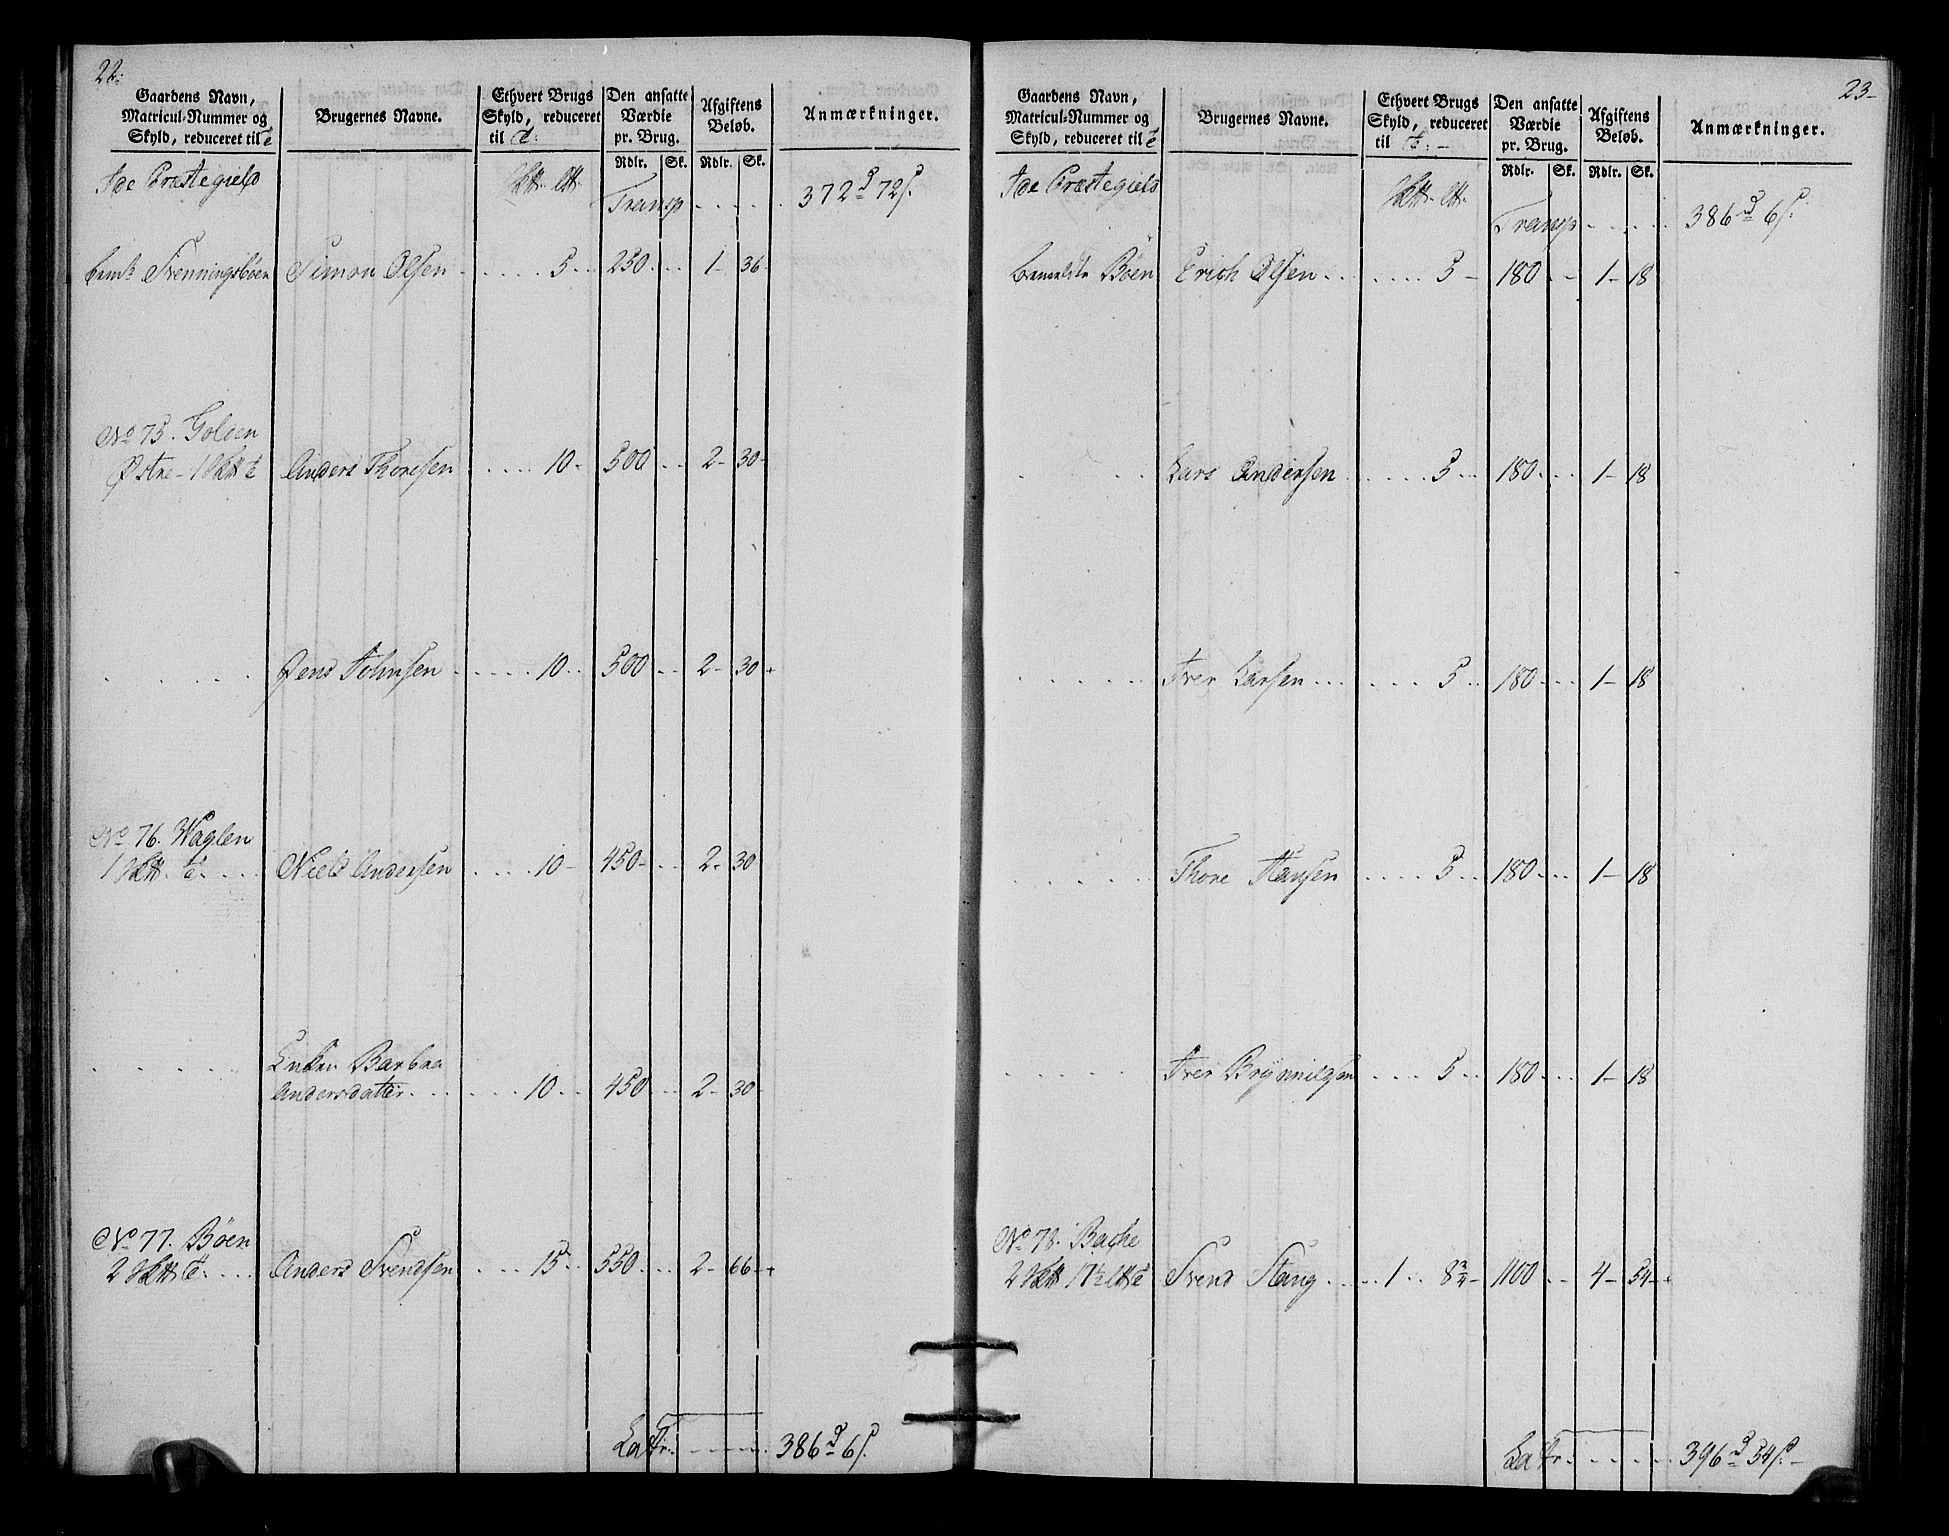 22.
Gaardens Navn,
Matricul-Nummer og
Skyld, reduceret til
Brugernes Navne.
Ethvert Brugs
Skyld, reduceret
til
Den ansatte
Værdie
pr. Brug.
Rdlr. Sk.
Afgiftens
Beløb.
Rdlr. Sk.
Anmærkninger.
Ide Præstegield
Transp 372 72
Svenningsbøen Simon Olsen 5 250 1 36
No 75. Goløen
Østre 1 Anders Thoresen 10 500 2 30
Jens Johnsen 10 500 2 30
No 76. Waglen
1 Niels Andersen 10 450 2 30
Barbra
Andersdatter 10 450 2 30
No 77. Böen
2 Anders Svendsen 15 550 2 66
Latr. 386 6
23
Gaardens Navn,
Matricul-Nummer og
Skyld, reduceret til
Brugernes Navne.
Ethvert Brugs
Skyld, reduceret
til
Den ansatte
Værdie
pr. Brug.
Rdlr. Sk.
Afgiftens
Beløb.
Rdlr. Sk.
Anmærkninger.
Ide Præstegield
Transp 386 6
Böen Erich Olsen 5 180 1 18
Lars Andersen 5 180 1 18
Iver Larsen 5 180 1 18
Thore Hansen 5 180 1 18
Iver Brynnildsen 5 180 1 18
No 78. Bache
2 17½ Svend Stang 1 8¾ 1100 4 54
Latr. 396 54